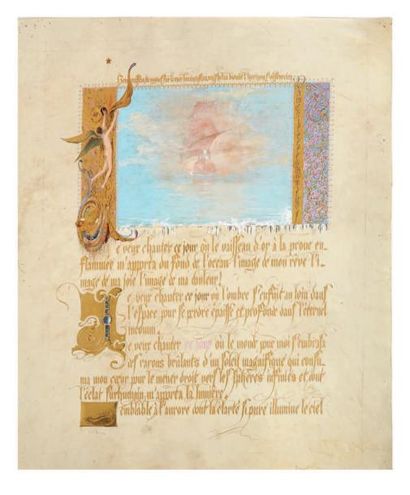 e veux chanter ce jour où le vaisseau d'or à la proue en-
flammée m'apprit du fond de l'océan l'image de mon rêve l'i-
mage de ma joie l'image de ma douleur!
e veux chanter ce jour où l'ombre s'enfuit au loin dans
l'espace pour se perdre épaisse et profonde dans l'éternel
inconnu
e veux chanter ce jour où le monde pour moi s'embrasa
des rayons brûlants d'un soleil magnifique qui
ma mon cœur pour le mener droit vers les sphères infinies et dont
l'éclat m'apprit la lumière
emblable à l'aurore dont la clarté si pure illumine le ciel